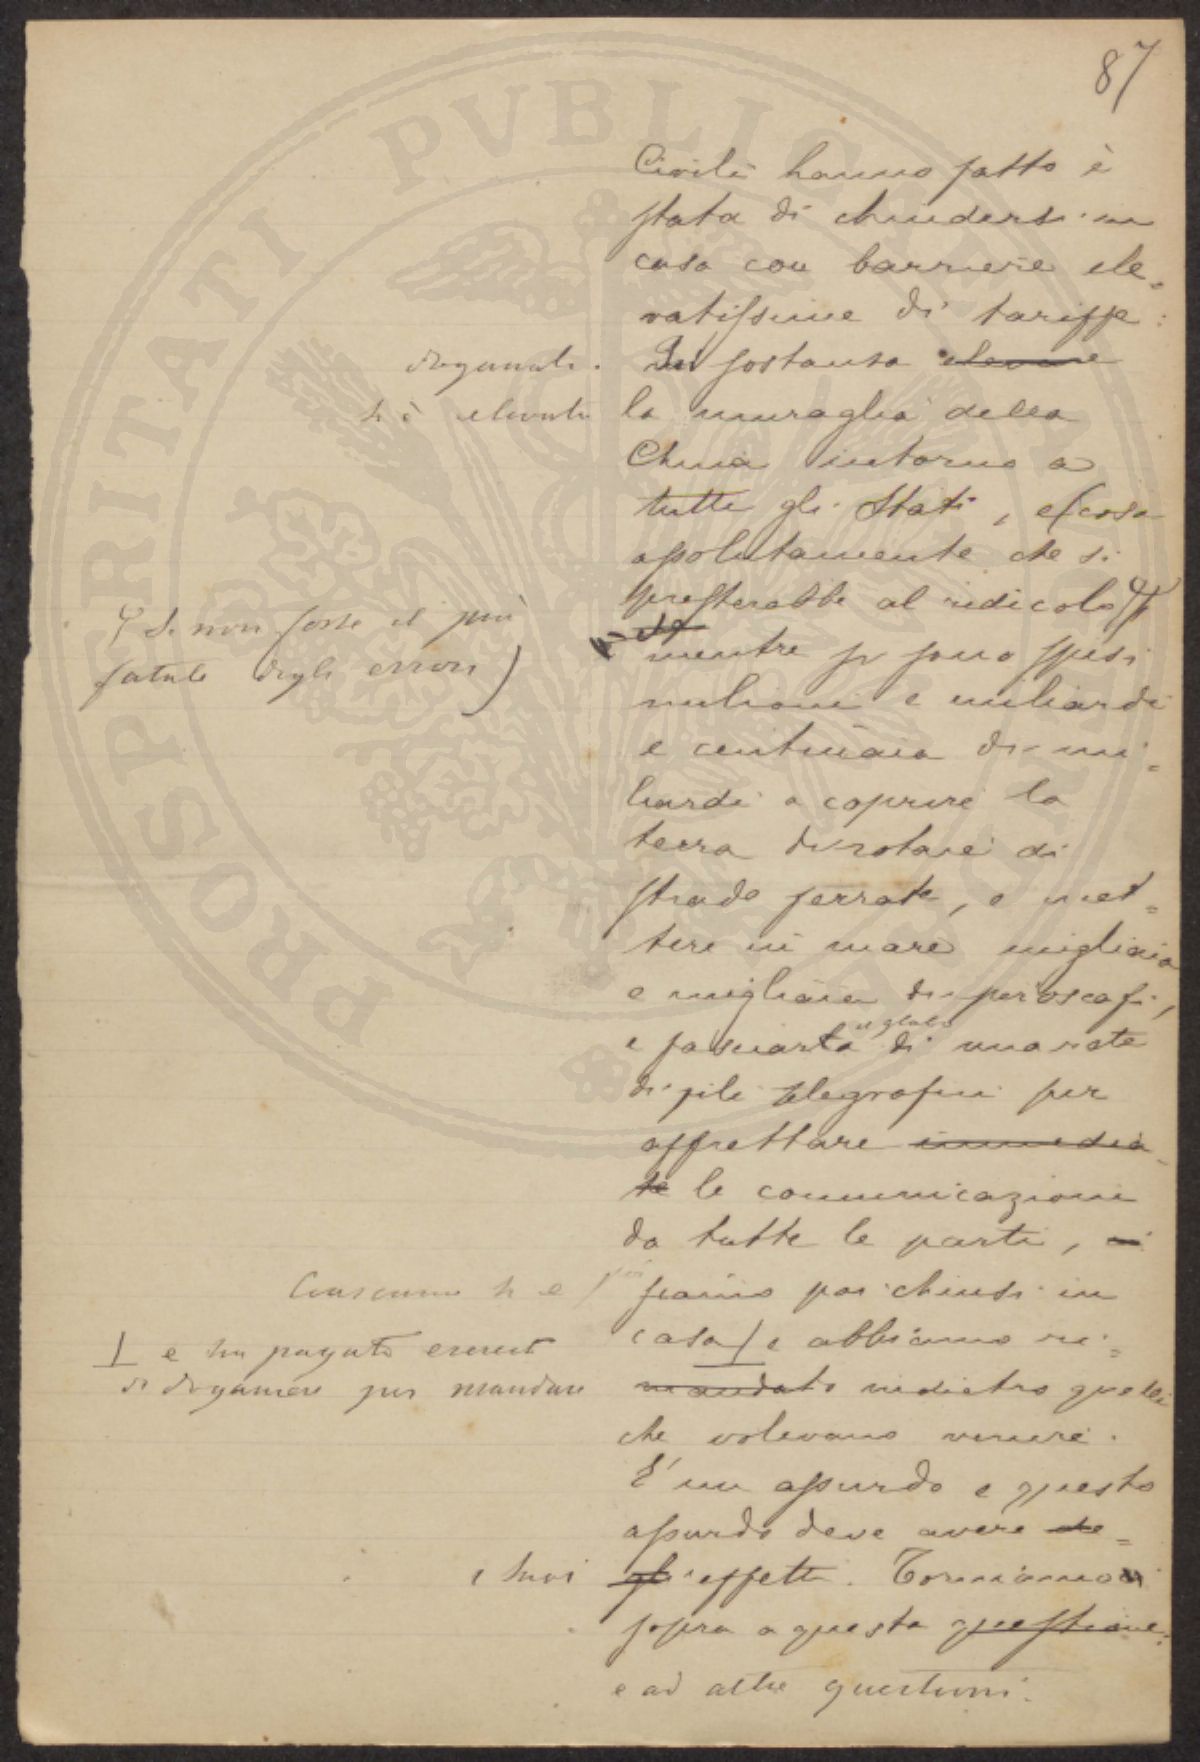 87
Civili hanno fatto è
stata di chiudersi in
casa con barriere ele=
vatissime di tariffe
doganali. In sostanza elevare
si è elevata la muraglia della
China intorno a
tutti gli Stati, e (cosa
assolutamente che si
presterebbe al ridicolo
se non fosse il più
fatale degli errori)
mentre si sono spesi
milioni e miliardi
e centinaia di mi=
liardi a coprire la
terra di rotaie di
strade ferrate, e met=
tere in mare migliaia
e migliaia di piroscafi,
il globo
e fasciarla di una rete
di fili telegrafici per
affrettare immedia=
te le comunicazioni
da tutte le parti,
Ciascuno si è
siamo poi chiusi in
casa e abbiamo ri=
e ha pagato eserciti
di doganieri per mandare
mandato indietro quelli
che volevano venire.
E' un assurdo e questo
assurdo deve avere de=
i suoi gli effetti. Torniamo
sopra a questa questione
e ad altre questioni.